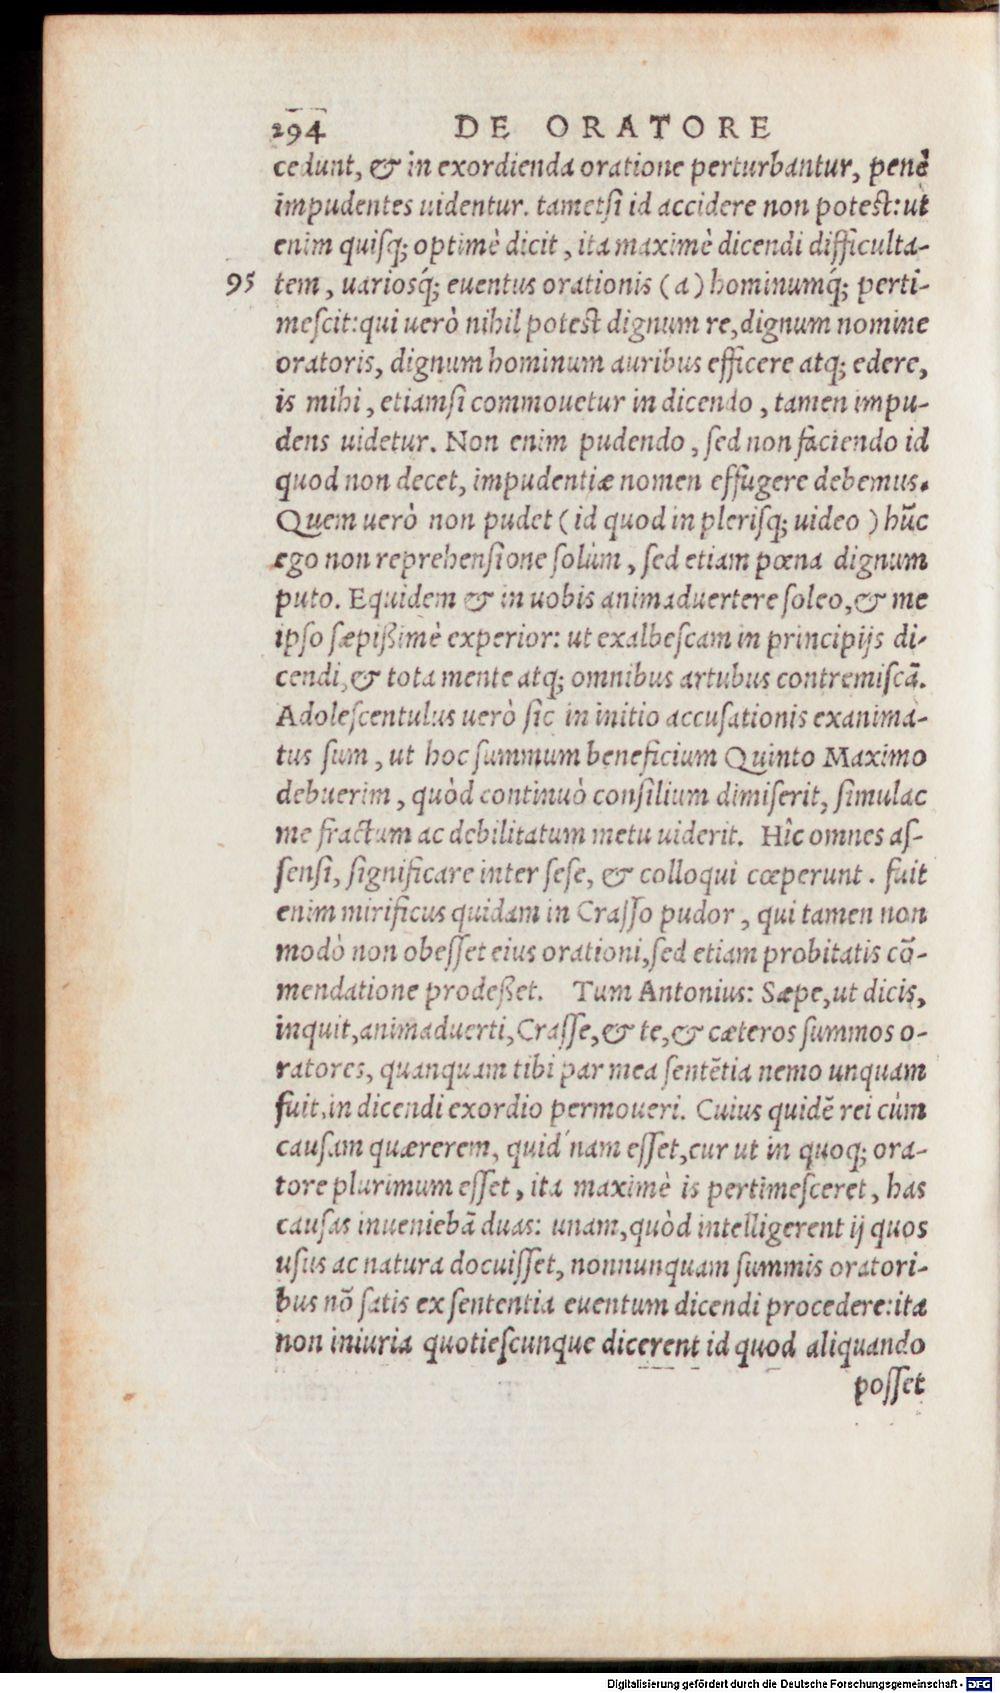 294 DE ORATORE
cedunt, & in exordienda oratione perturbantur, penè
impudentes uidentur. tametſi id accidere non poteſt: ut
enim quiſq; optimè dicit, ita maximè dicendi difficulta-
95 tem, uarioſq́; euentus orationis (a) hominumq́; perti-
meſcit: qui uerò nihil poteſt dignum re, dignum nomine
oratoris, dignum hominum auribus efficere atq; edere,
is mihi, etiamſi commouetur in dicendo, tamen impu-
dens uidetur. Non enim pudendo, ſed non faciendo id
quod non decet, impudentiæ nomen effugere debemus.
Quem uerò non pudet (id quod in pleriſq; uideo) hũc
ego non reprehenſione ſolùm, ſed etiam pœna dignum
puto. Equidem & in uobis animaduertere ſoleo, & me
ipſo ſæpißimè experior: ut exalbeſcam in principijs di-
cendi, & tota mente atq; omnibus artubus contremiſcã.
Adoleſcentulus uerò ſic in initio accuſationis exanima-
tus ſum, ut hoc ſummum beneficium Quinto Maximo
debuerim, quòd continuò conſilium dimiſerit, ſimulac
me fractum ac debilitatum metu uiderit. Hîc omnes aſ-
ſenſi, ſignificare inter ſeſe, & colloqui cœperunt. fuit
enim mirificus quidam in Craſſo pudor, qui tamen non
modò non obeſſet eius orationi, ſed etiam probitatis cõ-
mendatione prodeßet. Tum Antonius: Sæpe, ut dicis,
inquit, animaduerti, Craſſe, & te, & cæteros ſummos o-
ratores, quanquam tibi par mea ſentẽtia nemo unquam
fuit, in dicendi exordio permoueri. Cuius quidẽ rei cùm
cauſam quærerem, quid´nam eſſet, cur ut in quoq; ora-
tore plurimum eſſet, ita maximè is pertimeſceret, has
cauſas inueniebã duas: unam, quòd intelligerent ij quos
uſus ac natura docuiſſet, nonnunquam ſummis oratori-
bus nõ ſatis ex ſententia euentum dicendi procedere: ita
non iniuria quotieſcunque dicerent id quod aliquando
poſſet
Digitalisierung gefördert durch die Deutsche Forschungsgemeinschaft - DFG